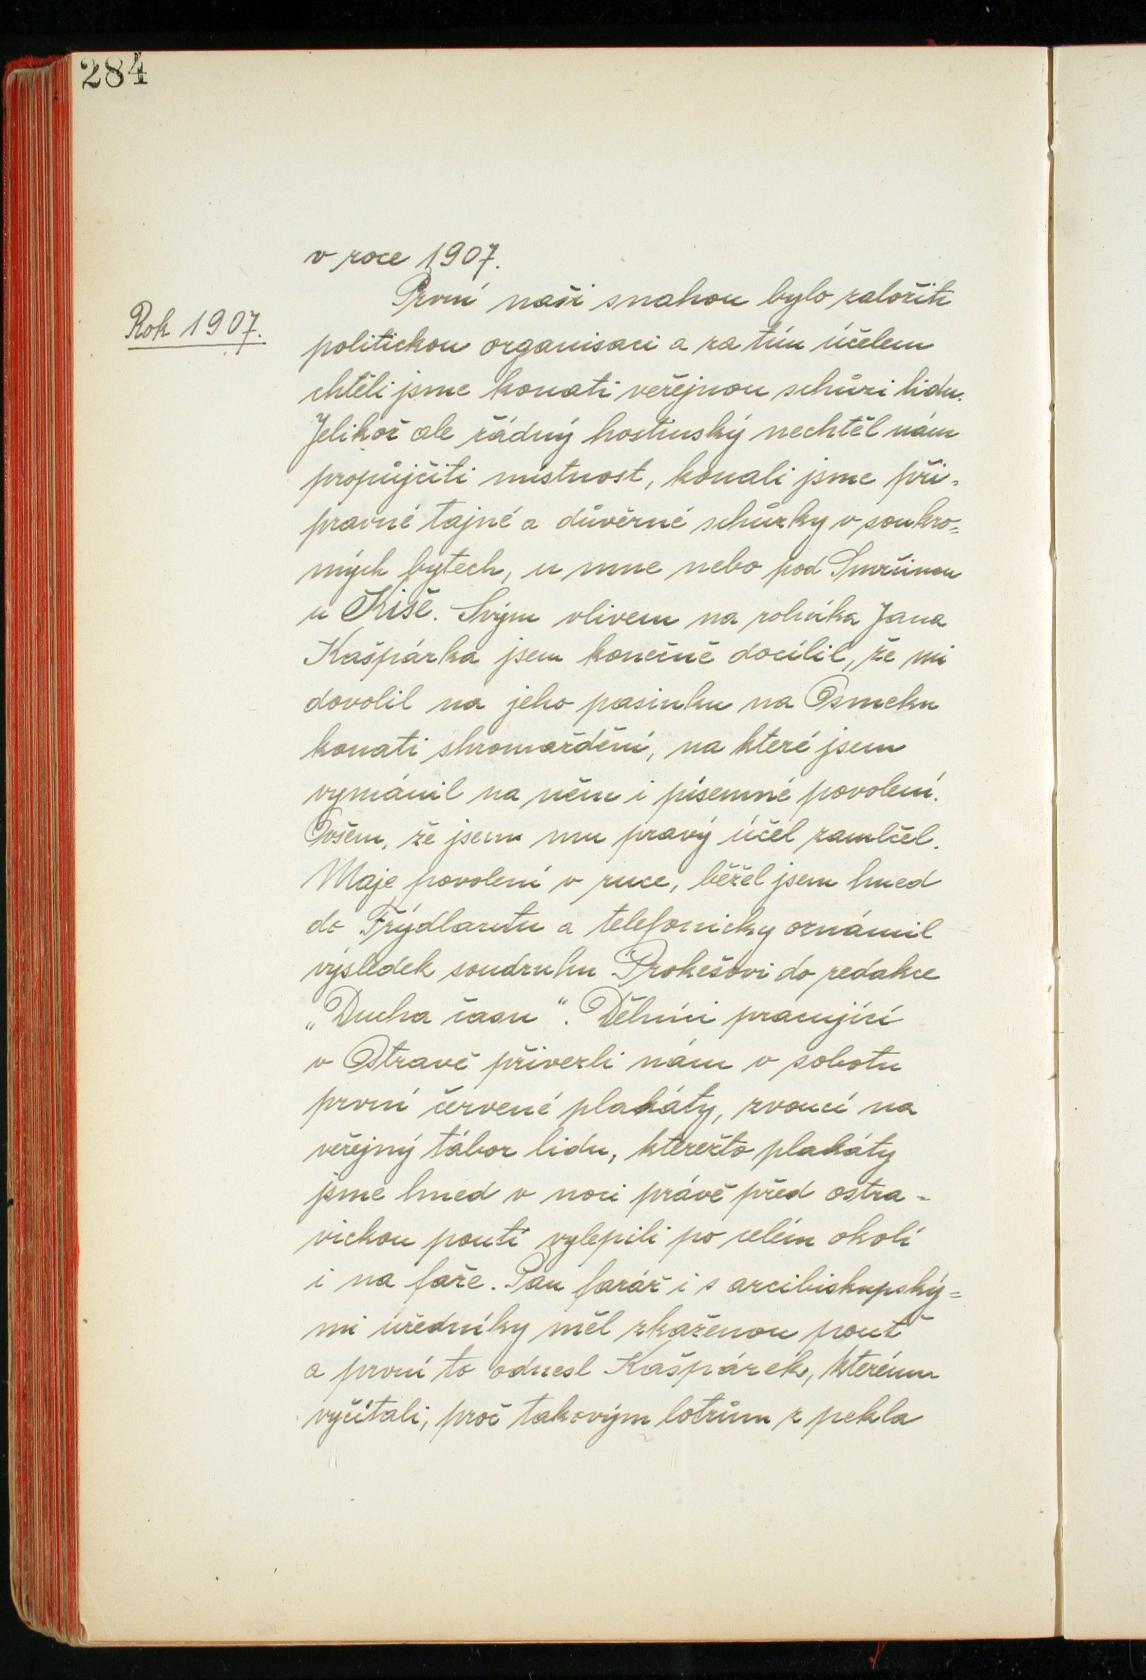 284
v roce 1907.
První naší snahou bylo založiti
Rok 1907.
politickou organisaci a za tím účelem
chtěli jsme konati veřejnou schůzi lidu.
Jelikož ale žádný hostinský nechtěl nám
propůjčiti místnost, konali jsme pří-
pravné tajné a důvěrné schůzky v soukro=
mých bytech, u mne nebo pod Smrčinou
u Kiše. Svým vlivem na rolníka Jana
Kašpárka jsem konečně docílil, že mi
dovolil na jeho pasinku na Osmeku
konati shromáždění, na které jsem
vymámil na něm i písemné povolení.
Ovšem, že jsem mu pravý účel zamlčel.
Maje povolení v ruce, běžel jsem hned
do Frýdlantu a telefonicky oznámil
výsledek soudruhu Prokešovi do redakce
„Ducha času“. Dělníci pracující
v Ostravě přivezli nám v sobotu
první červené plakáty, zvoucí na
veřejný tábor lidu, kterežto plakáty
jsme hned v noci právě před ostra-
vickou poutí vylepili po celém okolí
i na faře. Pan farář i s arcibiskupský=
mi úředníky měl zkaženou pouť
a první to odnesl Kašpárek, kterému
vyčítali, proč takovým lotrům z pekla